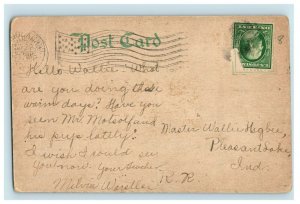 Post Card
8
Hello Wallie - What
are you doing these
warm days? Have you
seen Mr.
his pups lately?
I wish I could see
you now. Your teacher
Melvia
Master Wallie
Pleasant Lake,
Ind.
R.R